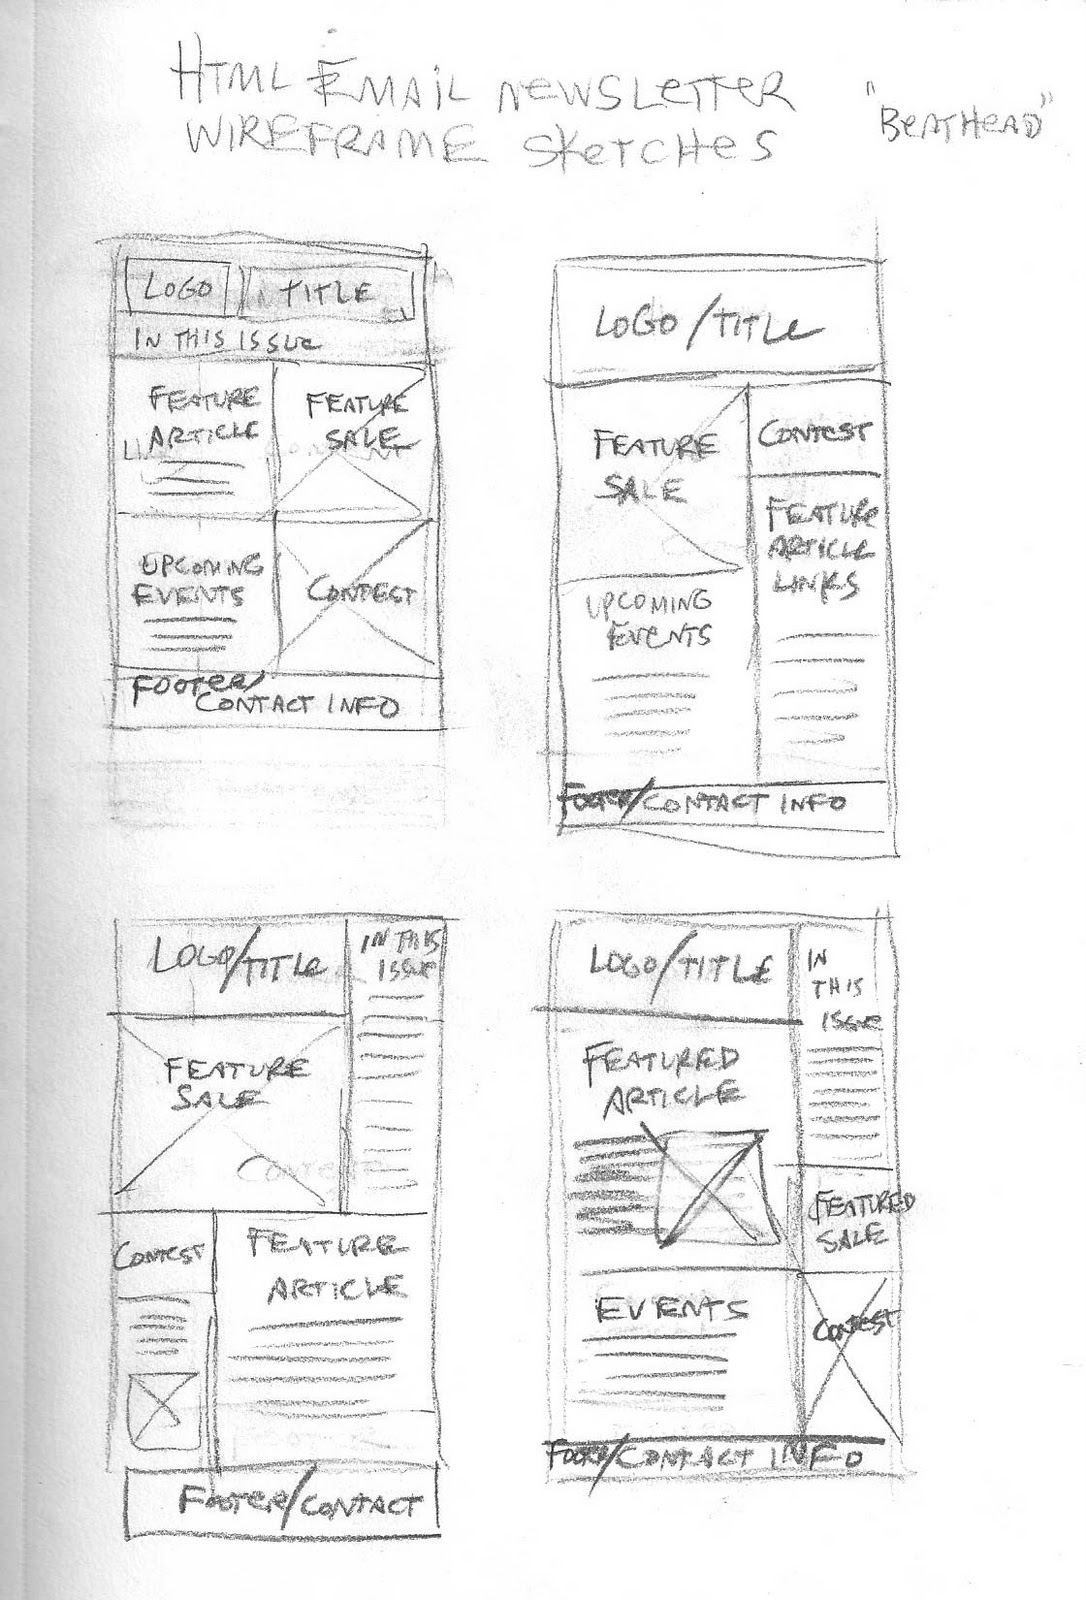 HTML EMAIL NEWSLETTER
WIREFRAME SKETCHES
"BEATHEAD"
LOGO
TITLE
IN THIS ISSUE
FEATURE
ARTICLE
FEATURE
SALE
UPCOMING
EVENTS
CONTEST
FOOTER/
CONTACT INFO
LOGO/TITLE
FEATURE
SALE
CONTEST
FEATURE
ARTICLE
LINKS
UPCOMING
EVENTS
FOOTER/CONTACT INFO
LOGO/TITLE
IN THIS
ISSUE
FEATURE
SALE
CONTEST
CONTEST
FEATURE
ARTICLE
FOOTER/CONTACT
LOGO/TITLE
IN
THIS
ISSUE
FEATURED
ARTICLE
FEATURED
SALE
EVENTS
CONTEST
FOOTER/CONTACT INFO